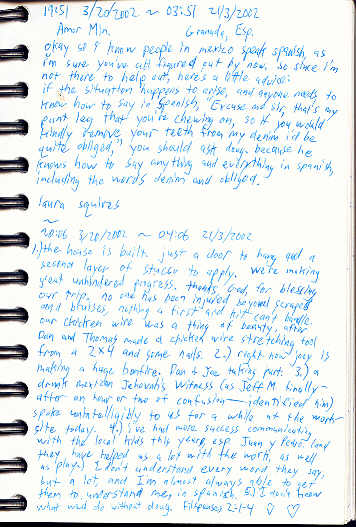 19:51 3/20/2002 ~ 03:51 21/3/2002
Amor Min. Granada, Esp.
okay so i know people in mexico speak spanish, as
i'm sure you've all figured out by now. so since i'm
not there to help out, here's a little advice:
if the situation happens to arise, and anyone needs to
know how to say in spanish, "Excuse me sir, that's my
pant leg that you're chewing on, so if you would
kindly remove your teeth from my denim i'd be
quite obliged," you should ask doug. because he
knows how to say anything and everything in spanish,
including the words denim and obliged.
laura squires
~
20:06 3/20/2002 ~ 04:06 21/3/2002
1.) the house is built. just a door to hang and a
second layer of stucco to apply. we're making
great unhindered progress. thanks, God, for blessing
our trip. no one has been injured beyond scrapes
and bruises, nothing a first aid kit can't handle.
our chicken wire was a thing of beauty, after
Dan and Thomas made a chicken wire stretching tool
from a 2x4 and some nails. 2.) right now joey is
making a huge bonfire. Dan & Joe taking part. 3.) a
drunk mexican Jehovah's Witness (as Jeff M finally -
after an hour or two of confusion - identified him)
spoke unintelligibly to us for a while at the work-
site today. 4.) i've had more success communicating
with the local kids this year, esp. Juan y Pedro (and
they have helped us a lot with the work, as well
as play.) I don't understand every word they say,
but a lot, and I'm almost always able to get
them to understand me, in spanish. 5.) I don't know
what we'd do without doug. Filipenses 2:1-4